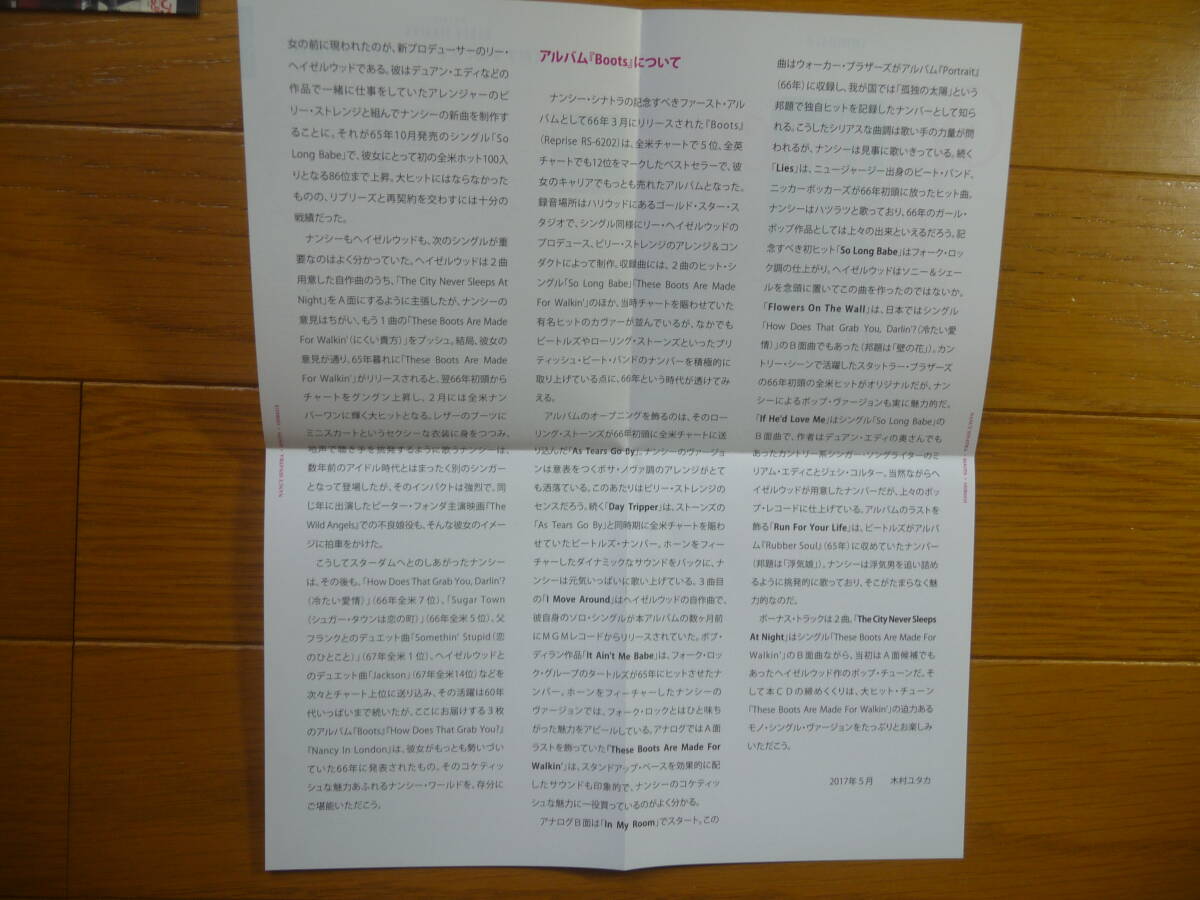 女の前に現われたのが、新プロデューサーのリー・
ヘイゼルウッドである。彼はデュアン・エディなどの
作品で一緒に仕事をしていたアレンジャーのビ
リー・ストレンジと組んでナンシーの新曲を制作す
ることに。それが65年10月発売のシングル「So
Long Babe」で、彼女にとって初の全米ホット100入
りとなる86位まで上昇。大ヒットにはならなかった
ものの、リプリーズと再契約を交わすには十分の
戦績だった。
ナンシーもヘイゼルウッドも、次のシングルが重
要なのはよく分かっていた。ヘイゼルウッドは2曲
用意した自作曲のうち、「The City Never Sleeps At
Night」をA面にするように主張したが、ナンシーの
意見はちがい、もう1曲の「These Boots Are Made
For Walkin'（にくい貴方）」をプッシュ。結局、彼女の
意見が通り、65年暮れに「These Boots Are Made
For Walkin'」がリリースされると、翌66年初頭から
チャートをグングン上昇し、2月には全米ナン
バーワンに輝く大ヒットとなる。レザーのブーツに
ミニスカートというセクシーな衣装に身をつつみ、
地声で聴き手を挑発するように歌うナンシーは、
数年前のアイドル時代とはまったく別のシンガー
となって登場したが、そのインパクトは強烈で、同
じ年に出演したピーター・フォンダ主演映画『The
Wild Angels』での不良娘役も、そんな彼女のイメー
ジに拍車をかけた。
こうしてスターダムへとのしあがったナンシー
は、その後も、「How Does That Grab You, Darlin'?
（冷たい愛情）」（66年全米7位）、「Sugar Town
（シュガー・タウンは恋の町）」（66年全米5位）、父
フランクとのデュエット曲「Somethin' Stupid（恋
のひとこと）」（67年全米1位）、ヘイゼルウッドと
のデュエット曲「Jackson」（67年全米14位）などを
次々とチャート上位に送り込み、その活躍は60年
代いっぱいまで続いたが、ここにお届けする3枚
のアルバム『Boots』『How Does That Grab You?』
『Nancy In London』は、彼女がもっとも勢いづい
ていた66年に発表されたもの。そのコケティッ
シュな魅力あふれるナンシー・ワールドを、存分に
ご堪能いただこう。
アルバム『Boots』について
ナンシー・シナトラの記念すべきファースト・アル
バムとして66年3月にリリースされた『Boots』
（Reprise RS-6202）は、全米チャートで5位、全英
チャートでも12位をマークしたベストセラーで、彼
女のキャリアでもっとも売れたアルバムとなった。
録音場所はハリウッドにあるゴールド・スター・ス
タジオで、シングル同様にリー・ヘイゼルウッドの
プロデュース、ビリー・ストレンジのアレンジ＆コン
ダクトによって制作。収録曲には、2曲のヒット・シ
ングル「So Long Babe」「These Boots Are Made
For Walkin'」のほか、当時チャートを賑わせていた
有名ヒットのカヴァーが並んでいるが、なかでも
ビートルズやローリング・ストーンズといったブリ
ティッシュ・ビート・バンドのナンバーを積極的に
取り上げている点に、66年という時代が透けてみ
える。
アルバムのオープニングを飾るのは、そのロー
リング・ストーンズが66年初頭に全米チャートに送
り込んだ「As Tears Go By」。ナンシーのヴァージョ
ンは意表をつくボサ・ノヴァ調のアレンジがとて
も洒落ている。このあたりはビリー・ストレンジの
センスだろう。続く「Day Tripper」は、ストーンズの
「As Tears Go By」と同時期に全米チャートを賑わ
せていたビートルズ・ナンバー。ホーンをフィー
チャーしたダイナミックなサウンドをバックに、ナ
ンシーは元気いっぱいに歌い上げている。3曲目
の「I Move Around」はヘイゼルウッドの自作曲で、
彼自身のソロ・シングルが本アルバムの数ヶ月前
にMGMレコードからリリースされていた。ボブ・
ディラン作品「It Ain't Me Babe」は、フォーク・ロッ
ク・グループのタートルズが65年にヒットさせたナ
ンバー。ホーンをフィーチャーしたナンシーの
ヴァージョンでは、フォーク・ロックとはひと味ち
がった魅力をアピールしている。アナログではA面
ラストを飾っていた「These Boots Are Made For
Walkin'」は、スタンドアップ・ベースを効果的に配
したサウンドも印象的で、ナンシーのコケティッ
シュな魅力に一役買っているのがよく分かる。
アナログB面は「In My Room」でスタート。この
曲はウォーカー・ブラザーズがアルバム『Portrait』
（66年）に収録し、我が国では「孤独の太陽」という
邦題で独自ヒットを記録したナンバーとして知ら
れる。こうしたシリアスな曲調は歌い手の力量が問
われるが、ナンシーは見事に歌いきっている。続く
「Lies」は、ニュージャージー出身のビート・バンド、
ニッカーボッカーズが66年初頭に放ったヒット曲。
ナンシーはハツラツと歌っており、66年のガール・
ポップ作品としては上々の出来といえるだろう。記
念すべき初ヒット「So Long Babe」はフォーク・ロッ
ク調の仕上がり。ヘイゼルウッドはソニー＆シェー
ルを念頭に置いてこの曲を作ったのではないか。
「Flowers On The Wall」は、日本ではシングル
「How Does That Grab You, Darlin'?（冷たい愛
情）」のB面曲でもあった（邦題は「壁の花」）。カン
トリー・シーンで活躍したスタットラー・ブラザーズ
の66年初頭の全米ヒットがオリジナルだが、ナン
シーによるポップ・ヴァージョンも実に魅力的だ。
「If He'd Love Me」はシングル「So Long Babe」の
B面曲で、作者はデュアン・エディの奥さんでも
あったカントリー系シンガー・ソングライターのミ
リアム・エディことジェシ・コルター。当然ながらヘ
イゼルウッドが用意したナンバーだが、上々のポッ
プ・レコードに仕上げている。アルバムのラストを
飾る「Run For Your Life」は、ビートルズがアルバ
ム『Rubber Soul』（65年）に収めていたナンバー
（邦題は「浮気娘」）。ナンシーは浮気男を追い詰め
るように挑発的に歌っており、そこがたまらなく魅
力的なのだ。
ボーナス・トラックは2曲。「The City Never Sleeps
At Night」はシングル「These Boots Are Made For
Walkin'」のB面曲ながら、当初はA面候補でも
あったヘイゼルウッド作のポップ・チューンだ。そ
して本CDの締めくくりは、大ヒット・チューン
「These Boots Are Made For Walkin'」の迫力ある
モノ・シングル・ヴァージョンをたっぷりとお楽しみ
いただこう。
2017年5月　木村ユタカ